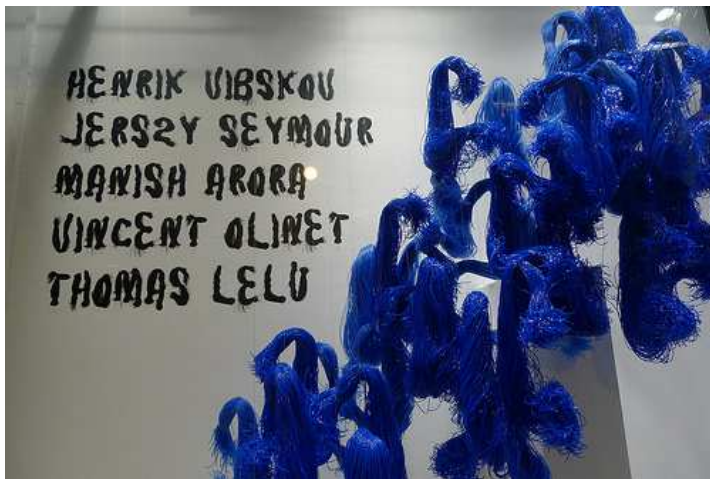 HENRIK VIBSKOV
JERSZY SEYMOUR
MANISH ARORA
VINCENT OLINET
THOMAS LELU